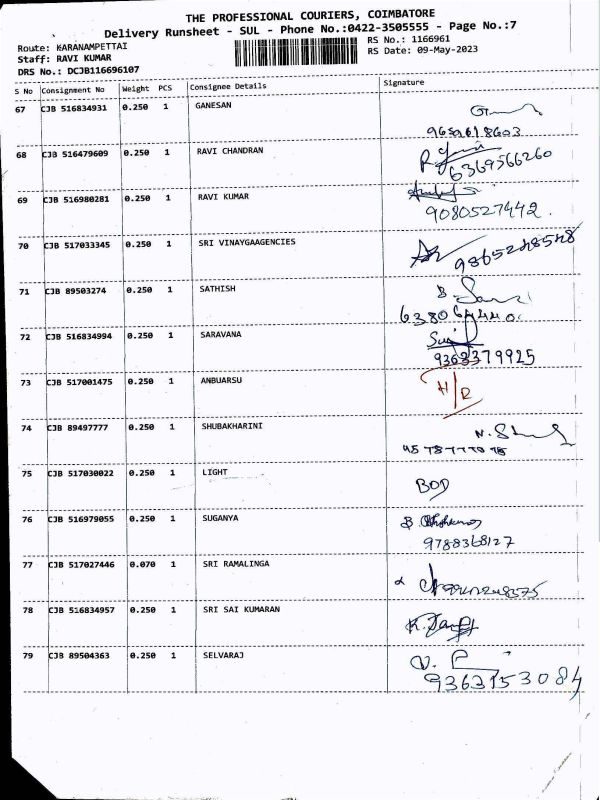 THE PROFESSIONAL COURIERS, COIMBATORE
Delivery Runsheet - SUL - Phone No.:0422-3505555 - Page No.:7
Route: KARANAMPETTAI
RS No.: 1166961
Staff: RAVI KUMAR
RS Date: 09-May-2023
DRS No.: DCJB116696107
S No Consignment No Weight PCS Consignee Details Signature
67 CJB 516834931 0.250 1 GANESAN
68 CJB 516479609 0.250 1 RAVI CHANDRAN
6369566260
69 CJB 516980281 0.250 1 RAVI KUMAR
9080527442.
70 CJB 517033345 0.250 1 SRI VINAYGAAGENCIES
9865248548
71 CJB 89503274 0.250 1 SATHISH
72 CJB 516834994 0.250 1 SARAVANA
9363379925
73 CJB 517001475 0.250 1 ANBUARSU
H/R
74 CJB 89497777 0.250 1 SHUBAKHARINI
75 CJB 517030022 0.250 1 LIGHT
BOD
76 CJB 516979055 0.250 1 SUGANYA
9788368127
77 CJB 517027446 0.070 1 SRI RAMALINGA
78 CJB 516834957 0.250 1 SRI SAI KUMARAN
79 CJB 89504363 0.250 1 SELVARAJ
9363153084